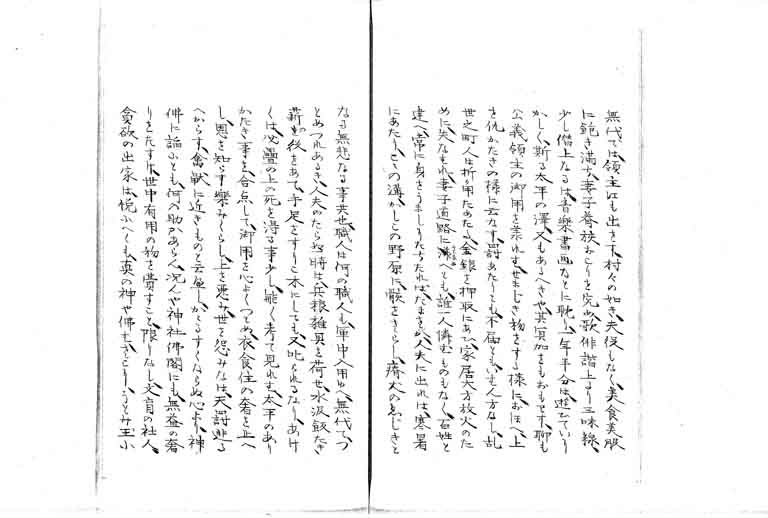 無代では領主江も出さず村々の如き夫役もなく美食美服
に飽き満ち妻子眷族おごりを究め歌俳諧上るり三味線
少し僭上なるは音樂書画などに耽り一年半分は遊びてい
かしく斯る太平の澤又もあるべきや其冥加をもおもはず聊も
公義領主の御用を業れませまじき物をする様におぼへ上
を仇かたきの様に云なす罰あたりとも不届ともいふ人方なし乱
世之町人は折角ためたる金銀を押取にあひ家居大方放火のた
めに失なもれ妻子道路に漂へても誰一人憐むものもなく百姓と
違へ常に身をうましたちたればたまさか人夫に出れは寒暑
にあたりどこの溝かしこの野原に骸をさらし瘠犬のゑじきと
なる無悲なる事共也職人は何の職人も軍中入用も無代てつ
とめつれあるき人夫のたらぬ時は兵粮雑具を荷せ水汲飯たき
薪迄後をあて手足をすりこ木にしても又叱られるなりあけ
くは必畳の上の死を得る事少し能く考て見れは太平のあり
かたき事を合点して御用を心よくつとめ衣食住の奢を止へ
し恩を知らす樂みくらし上を悪み世を怨みなは天罰遁る
へからす禽獣に近きものと云へしかゝるすくならぬ心より神
佛に諂ふとも何ぞ助かあらん况んや神社佛閣にも無益の奢
りをなす世中有用の物を費すこと限りなし文盲の社人
貪欲の出家は悦ふへくも真の神や佛は